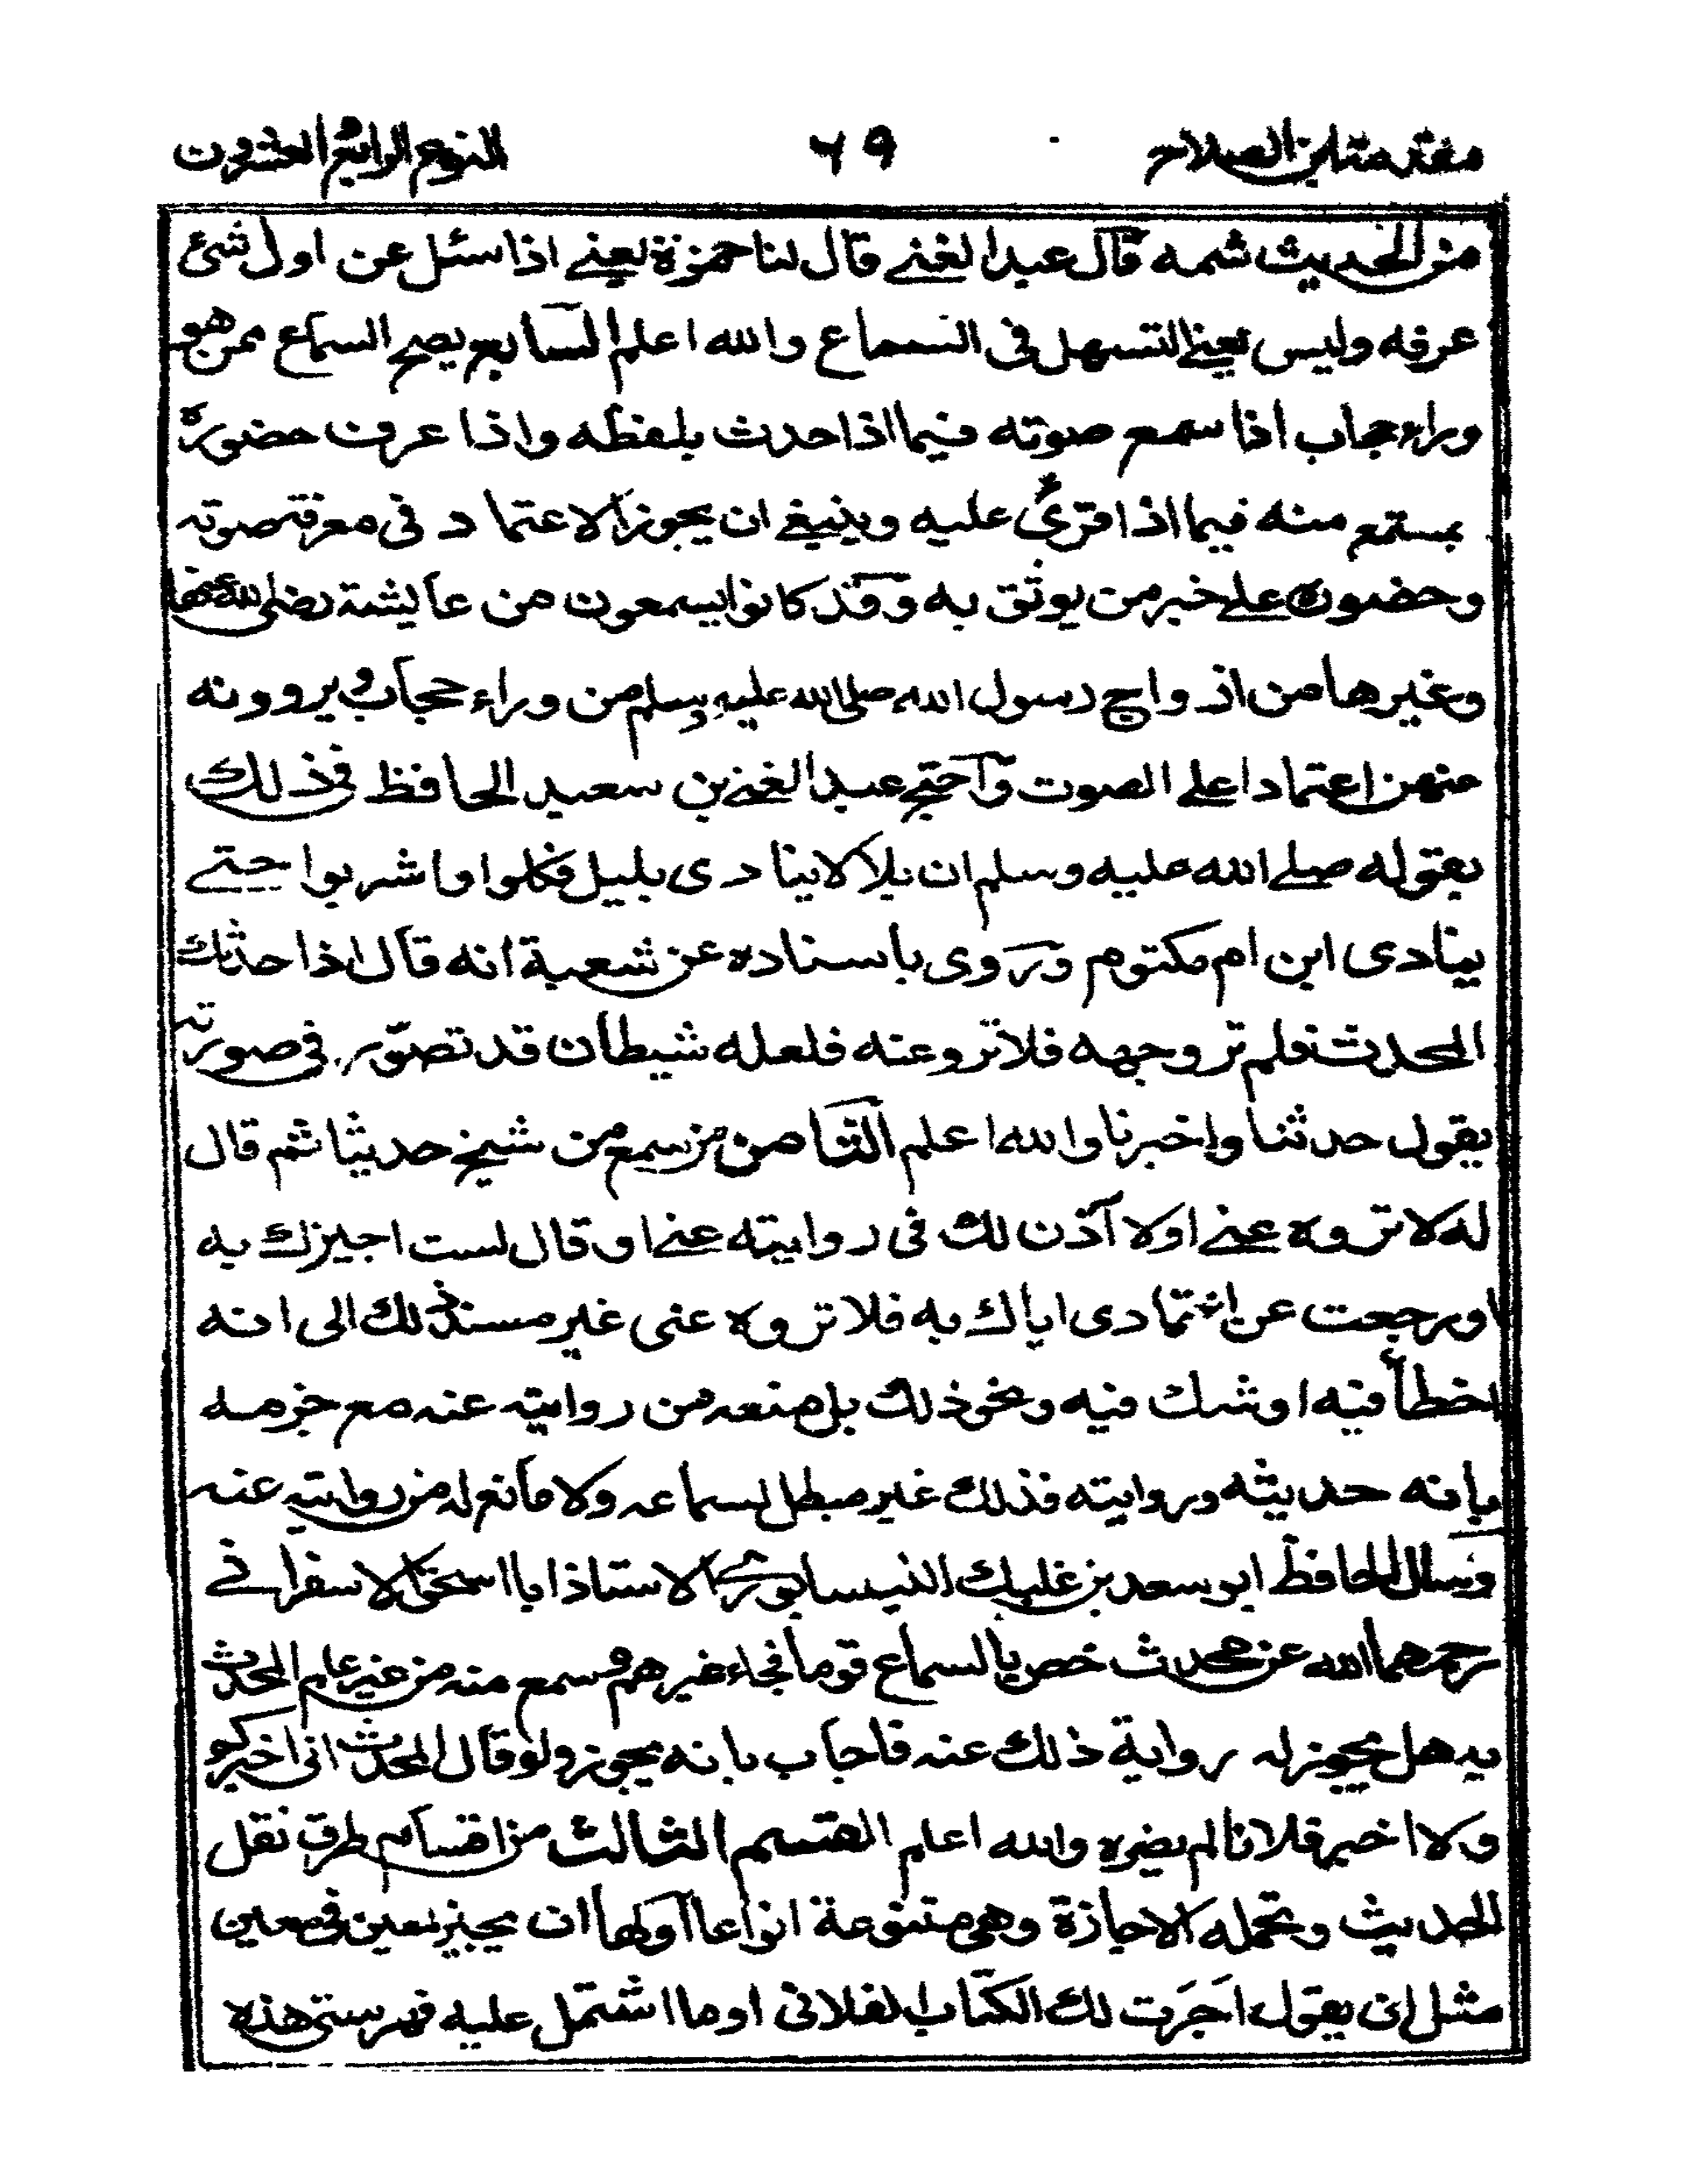 مقدمة ابن الصلاح ٦٩ النوع الرابع والعشرون
من الحديث شمه قال عبد الغنے قال لنا حمزة يعنے اذا سئل عن اول شئ
عرفه وليس يعنے التسهل فى السماع والله اعلم السابع يصح السماع ممن هو
وراء حجاب اذا سمع صوته فيما اذا حدث بلفظه واذا عرف حضوره
بمستمع منه فيما اذا قرئ عليه وينبغے ان يجوز الاعتماد فى معرفة صوته
وحضوره علے خبر من يوثق به وقد كانوا يسمعون من عايشة رضى الله عنها
وغيرها من ازواج رسول الله صلى الله عليه وسلم من وراء حجاب ويروونه
عنهن اعتمادا علے الصوت واحتج عبد الغنے بن سعيد الحافظ فى ذلك
بقوله صلے الله عليه وسلم ان بلالا ينادى بليل فكلوا واشربوا حتے
ينادى ابن ام مكتوم وروى باسناده عن شعبة انه قال اذا حدثك
المحدث فلم تر وجهه فلا ترو عنه فلعله شيطان قد تصوّر فى صورته
يقول حدثنا واخبرنا والله اعلم الثامن من سمع من شيخ حديثا ثم قال
له لا تروه عنے اولا آذن لك فى روايته عنے او قال لست اجيزك به
او رجعت عن اعتمادى اياك به فلا تروه عنى غير مسند ذلك الى انه
اخطأ فيه او شك فيه ونحو ذلك بل منعه من روايته عنه مع جزمه
بانه حديثه وروايته فذلك غير مبطل لسماعه ولا مانع له من روايته عنه
وسال الحافظ ابو سعد بن عليك النيسابورے الاستاذ ابا اسحق الاسفرائے
رحمهما الله عن محدث خص بالسماع قوما فجاء غيرهم وسمع منه من غير علم المحدث
به هل يجوز له رواية ذلك عنه فاجاب بانه يجوز ولو قال المحدث انى اخبركو
ولا اخبر فلانا لم يضره والله اعلم القسم الثالث من اقسام طرق نقل
الحديث وتحمله الاجازة وهى متنوعة انواعا اولها ان يجيز لمعين فى معين
مثل ان يقول اجزت لك الكتاب الفلانى او ما اشتمل عليه فهرستى هذه